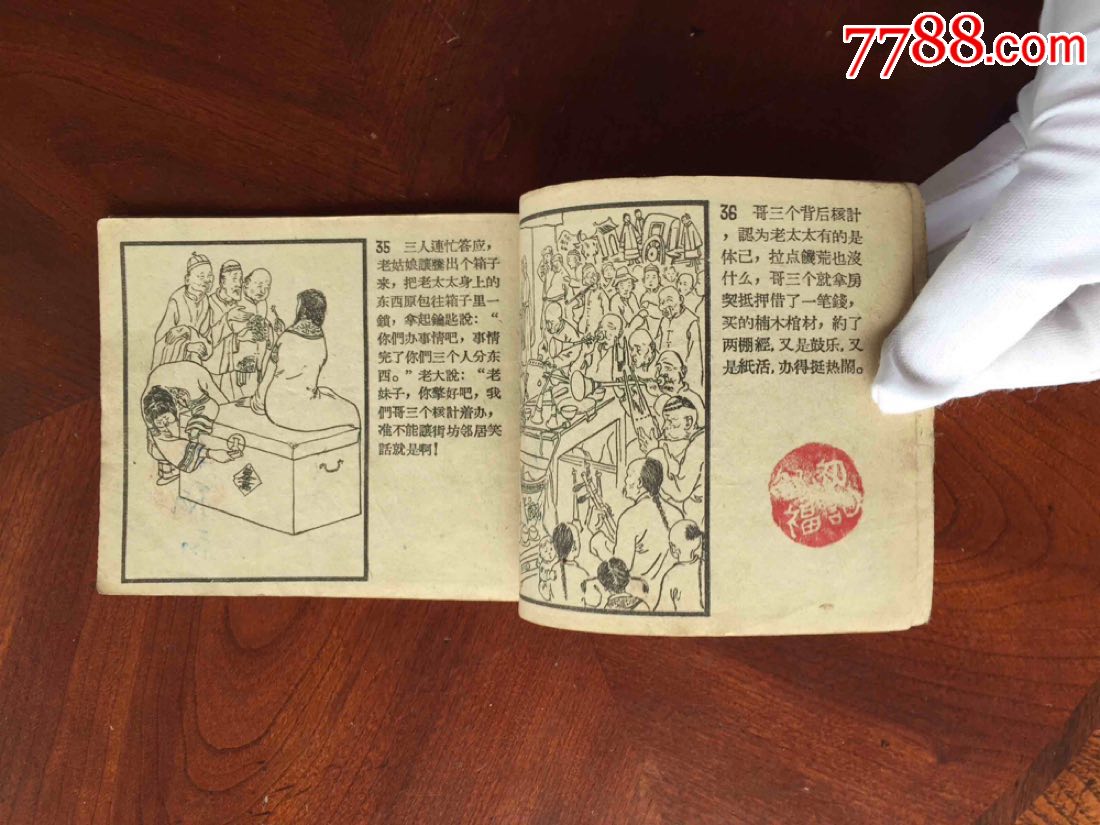 7788.com
35 三人連忙答应,
老姑娘讓騰出个箱子
来,把老太太身上的
东西原包往箱子里一
鎖,拿起鑰匙說:“
你們办事情吧,事情
完了你們三个人分东
西。”老大說:“老
妹子,你擎好吧,我
們哥三个核計着办,
准不能讓街坊邻居笑
話就是啊!
36 哥三个背后核計
,認为老太太有的是
体己,拉点饑荒也沒
什么,哥三个就拿房
契抵押借了一笔錢,
买的楠木棺材,約了
两棚經,又是鼓乐,又
是紙活,办得挺热鬧。
福